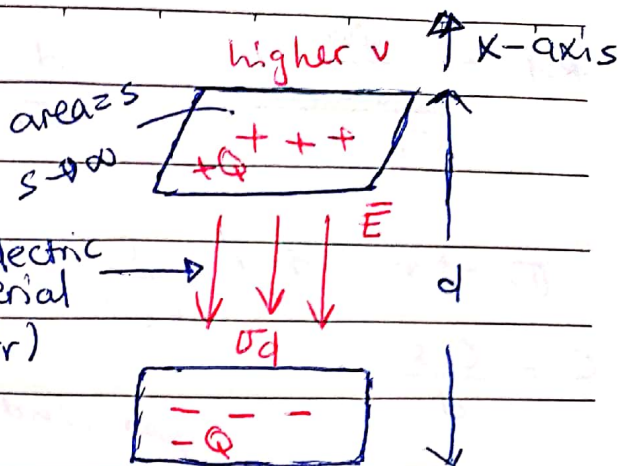 higher v
x-axis
area=s
s→∞
+ + +
+Q
E̅
lectric
erial
d
r)
σd
- - -
-Q